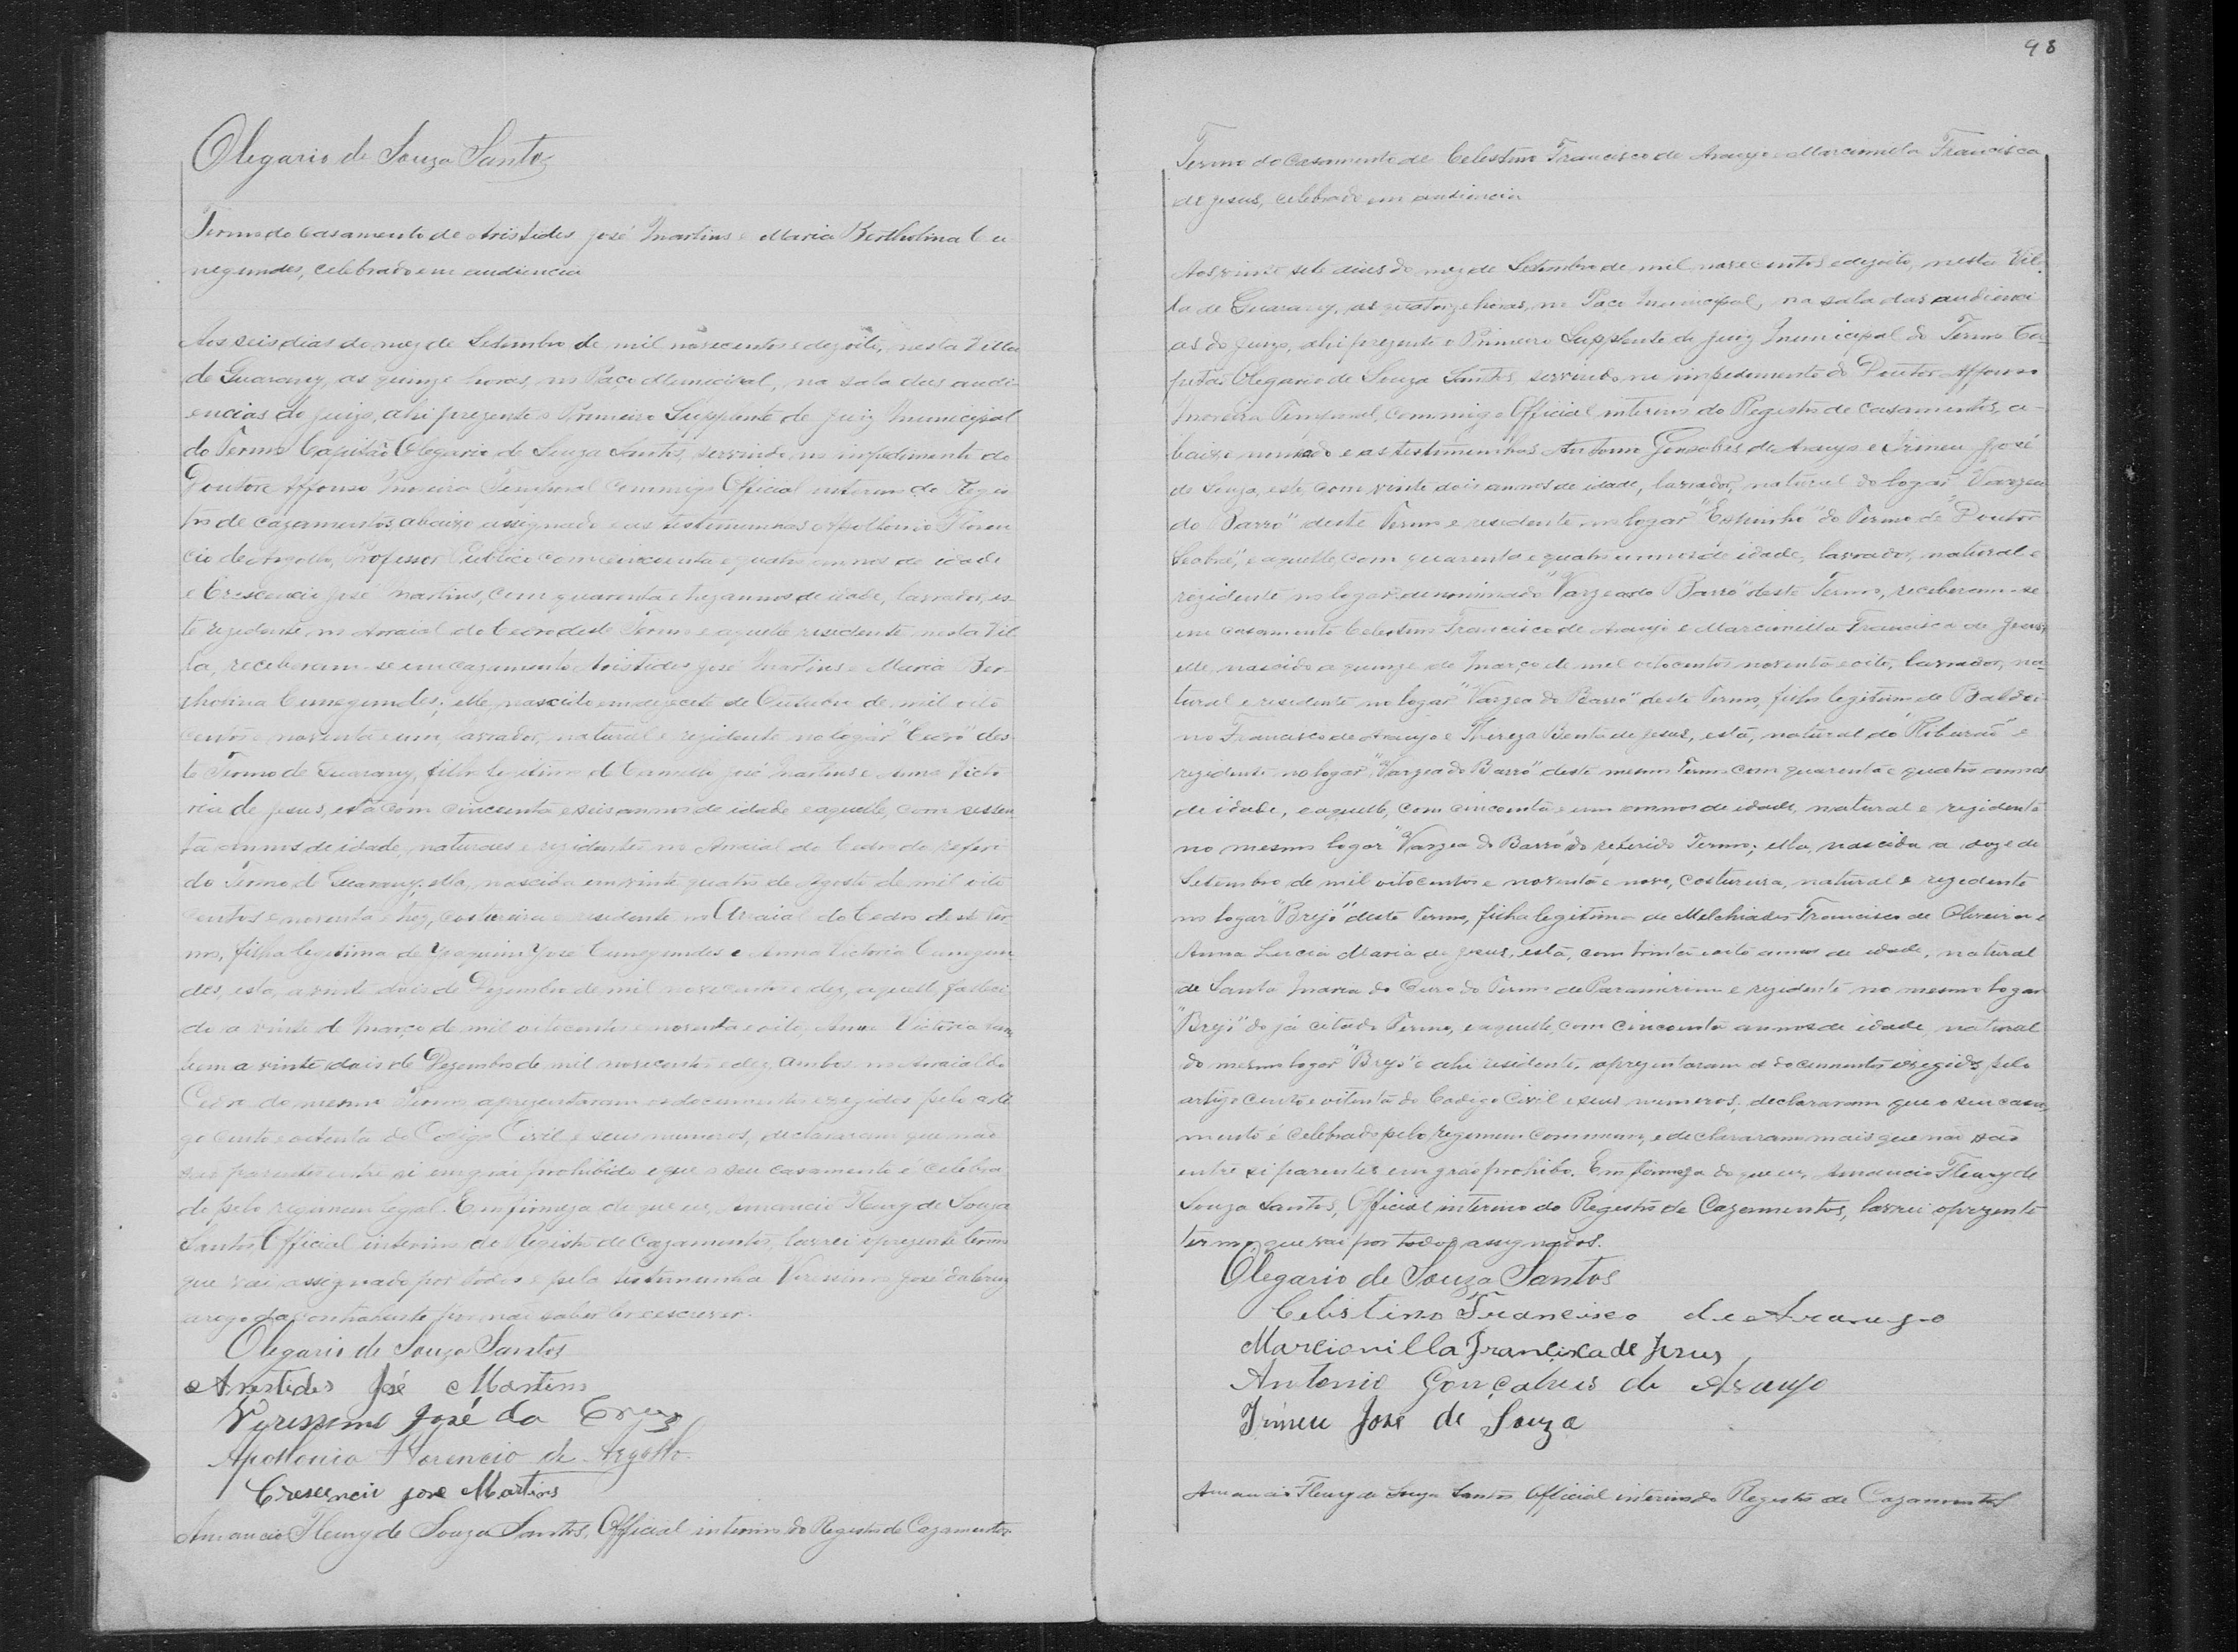 Olegario de Souza Santos
Termo do Casamento de Aristides José Martins e Maria Bertholina Cu
negundes, celebrado em audiencia
Aos seis dias do mez de Setembro de mil novecentos e dezoito, nesta Villa
de Guarany, as quinze horas, no Paço Municipal, na sala das audi-
encias do juizo, ahi prezente o Primeiro Supplente de Juiz Municipal
do Termo Capitão Olegario de Souza Santos, servindo no impedimento do
Doutor Affonso Moreira Temporal commigo Official interino do Regis
tro de cazamentos abaixo assignado e as testimunhas Apollonio Floren
cio de Argollo, Professor Publico com cincoenta e quatro annos de idade
e Crescencio José Martins, com quarenta e trez annos de idade, lavrador, es-
te rezidente no Arraial do Cedro deste Termo e aquelle residente nesta Vil
la, receberam-se em cazamento Aristides José Martins e Maria Ber-
tholina Cunegundes; elle, nascido em dezecete de Outubro de mil oito
centos e noventa e um, lavrador, natural e rezidente no logar "Cedro" des-
te Termo de Guarany, filho legitimo de Camillo José Martins e Anna Victo
ria de Jesus, esta com cincoenta e seis annos de idade e aquelle, com sessen
ta annos de idade, naturaes e rezidentes no Arraial do Cedro do referi-
do Termo de Guarany; ella, nascida em vinte quatro de Agosto de mil oito
centos e noventa e trez, costureira e residente no Arraial do Cedro deste Ter-
mo, filha legitima de Joaquim José Cunegundes e Anna Victoria Cunegun
des, esta, a vinte dois de Dezembro de mil novecentos e dez, aquelle falleci
do a vinte de Março de mil oitocentos e noventa e oito, Anna Victoria tam
bem a vinte dois de Dezembro de mil novecentos e dez, ambos no Arraial do
Cedro do mesmo Termo aprezentaram os documentos exegidos pelo arti
go cento e oitenta do Codigo Civil e seus numeros, declararam que não
são parentes entre si em grau prohibido e que o seu casamento é celebra
do pelo regimen legal. Em firmeza do que eu, Amancio Fleury de Souza
Santos Official interino do Registro de Cazamentos, lavrei o prezente termo
que vai assignado por todos e pela testimunha Virissimo José da Cruz
a rogo da contrahente por não saber ler e escrever.
Olegario de Souza Santos
Aristides José Martins
Virissimo José da Cruz
Apollonio Florencio de Argollo
Crescencio Jose Martins
Amancio Fleury de Souza Santos, Official interino do Registro de Cazamentos
98
Termo do Casamento de Celestino Francisco de Araujo e Marcionilla Francisca
de Jesus, celebrado em audiencia
Aos vinte sete dias do mez de Setembro de mil novecentos e dezoito, nesta Vil-
la de Guarany, as quatorze horas, no Paço Municipal, na sala das audienci
as do juizo, ahi prezente o Primeiro Supplente de Juiz Municipal do Termo Ca-
pitão Olegario de Souza Santos, servindo no impedimento do Doutor Affonso
Moreira Temporal, commigo Official interino do Registro de Casamentos, a-
baixo nomeado e as testimunhas Antonio Gonsalves de Araujo e Irineu José
de Souza, este, com vinte dois annos de idade, lavrador, natural do logar "Varzea
do Barro" deste Termo e residente no logar do Termo de "Doutor
Seabra", e aquelle, com quarenta e quatro annos de idade, lavrador, natural e
rezidente no logar denominado "Varzea do Barro" deste Termo, receberam-se
em casamento Celestino Francisco de Araujo e Marcionilla Francisca de Jesus,
elle, nascido a quinze de Março de mil oitocentos noventa e oito, lavrador, na-
tural e residente no logar "Varzea do Barro" deste Termo, filho legitimo de Baldoi
no Francisco de Araujo e Thereza Benta de Jesus, esta, natural do "Riburão" e
rezidente no logar "Varzea do Barro" deste mesmo Termo com quarenta e quatro annos
de idade, e aquelle, com cincoenta e um annos de idade, natural e rezidente
no mesmo logar "Varzea do Barro" do referido Termo; ella, nascida a doze de
Setembro de mil oitocentos e noventa e nove, costureira, natural e rezidente
no logar "Brejo" deste Termo, filha legitima de Melchiades Francisco de Oliveira e
Anna Lucia Maria de Jesus, esta, com trinta e oito annos de idade, natural
de Santa Maria do Ouro do Termo de Paramirim e rezidente no mesmo logar
"Brejo" do já citado Termo, e aquelle, com cincoenta annos de idade, natural
do mesmo logar "Brejo" e ahi residente, aprezentaram os documentos exegidos pelo
artigo cento e oitenta do Codigo Civil e seus numeros; declararam que o seu casa-
mento é celebrado pelo regimen commum, e declararam mais que não são
entre si parentes em grão prohibo. Em firmeza do que eu, Amancio Fleury de
Souza Santos, Official interino do Registro de Cazamentos, lavrei o prezente
termo, que vai por todos assignados.
Olegario de Souza Santos
Celistino Francisco de Araujo
Marcionilla Francisca de Jesus
Antonio Gonçalves de Araujo
Irineu José de Souza
Amancio Fleury de Souza Santos Official interino do Registro de Cazamentos